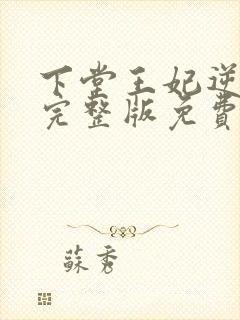 下堂王妃逆
完整版免費
蘇秀